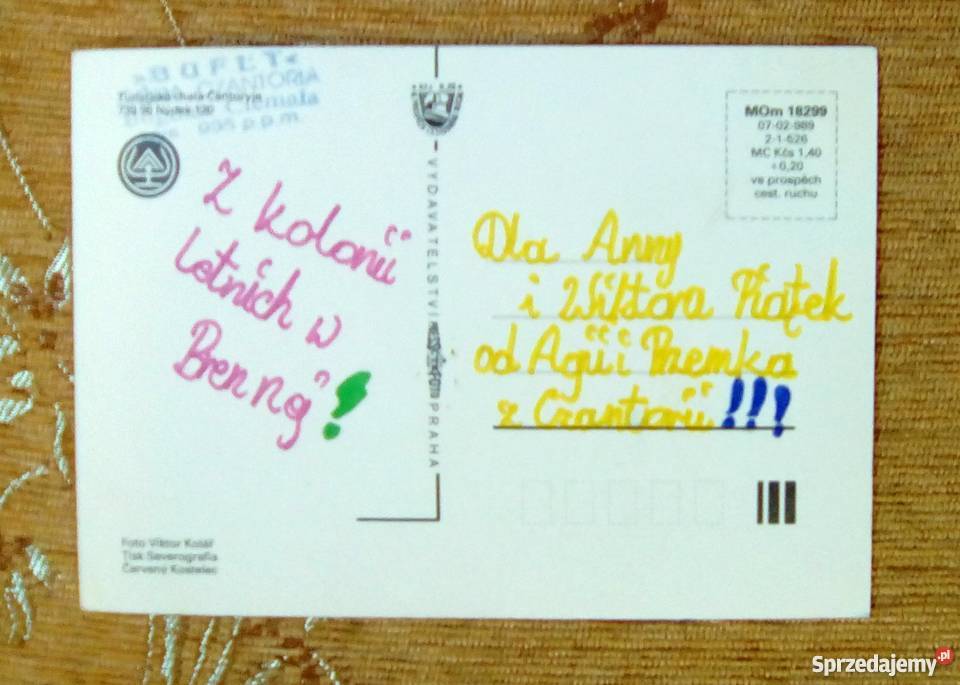 »BUFET«
CZANTORIA
Turistická chata Čantoryje
739 95 Nýdek 190
995 p.p.m.
Z kolonii
letnich w
Brennej!
Foto Viktor Kolář
Tisk Severografia
Červený Kostelec
VYDAVATELSTVÍ
PRAHA
MOm 18299
07-02-989
2-1-626
MC Kčs 1,40
+0,20
ve prospěch
cest. ruchu
Dla Anny
i Wiktora Piątek
od Agii i Przemka
z Czantorii!!!
Sprzedajemy.pl